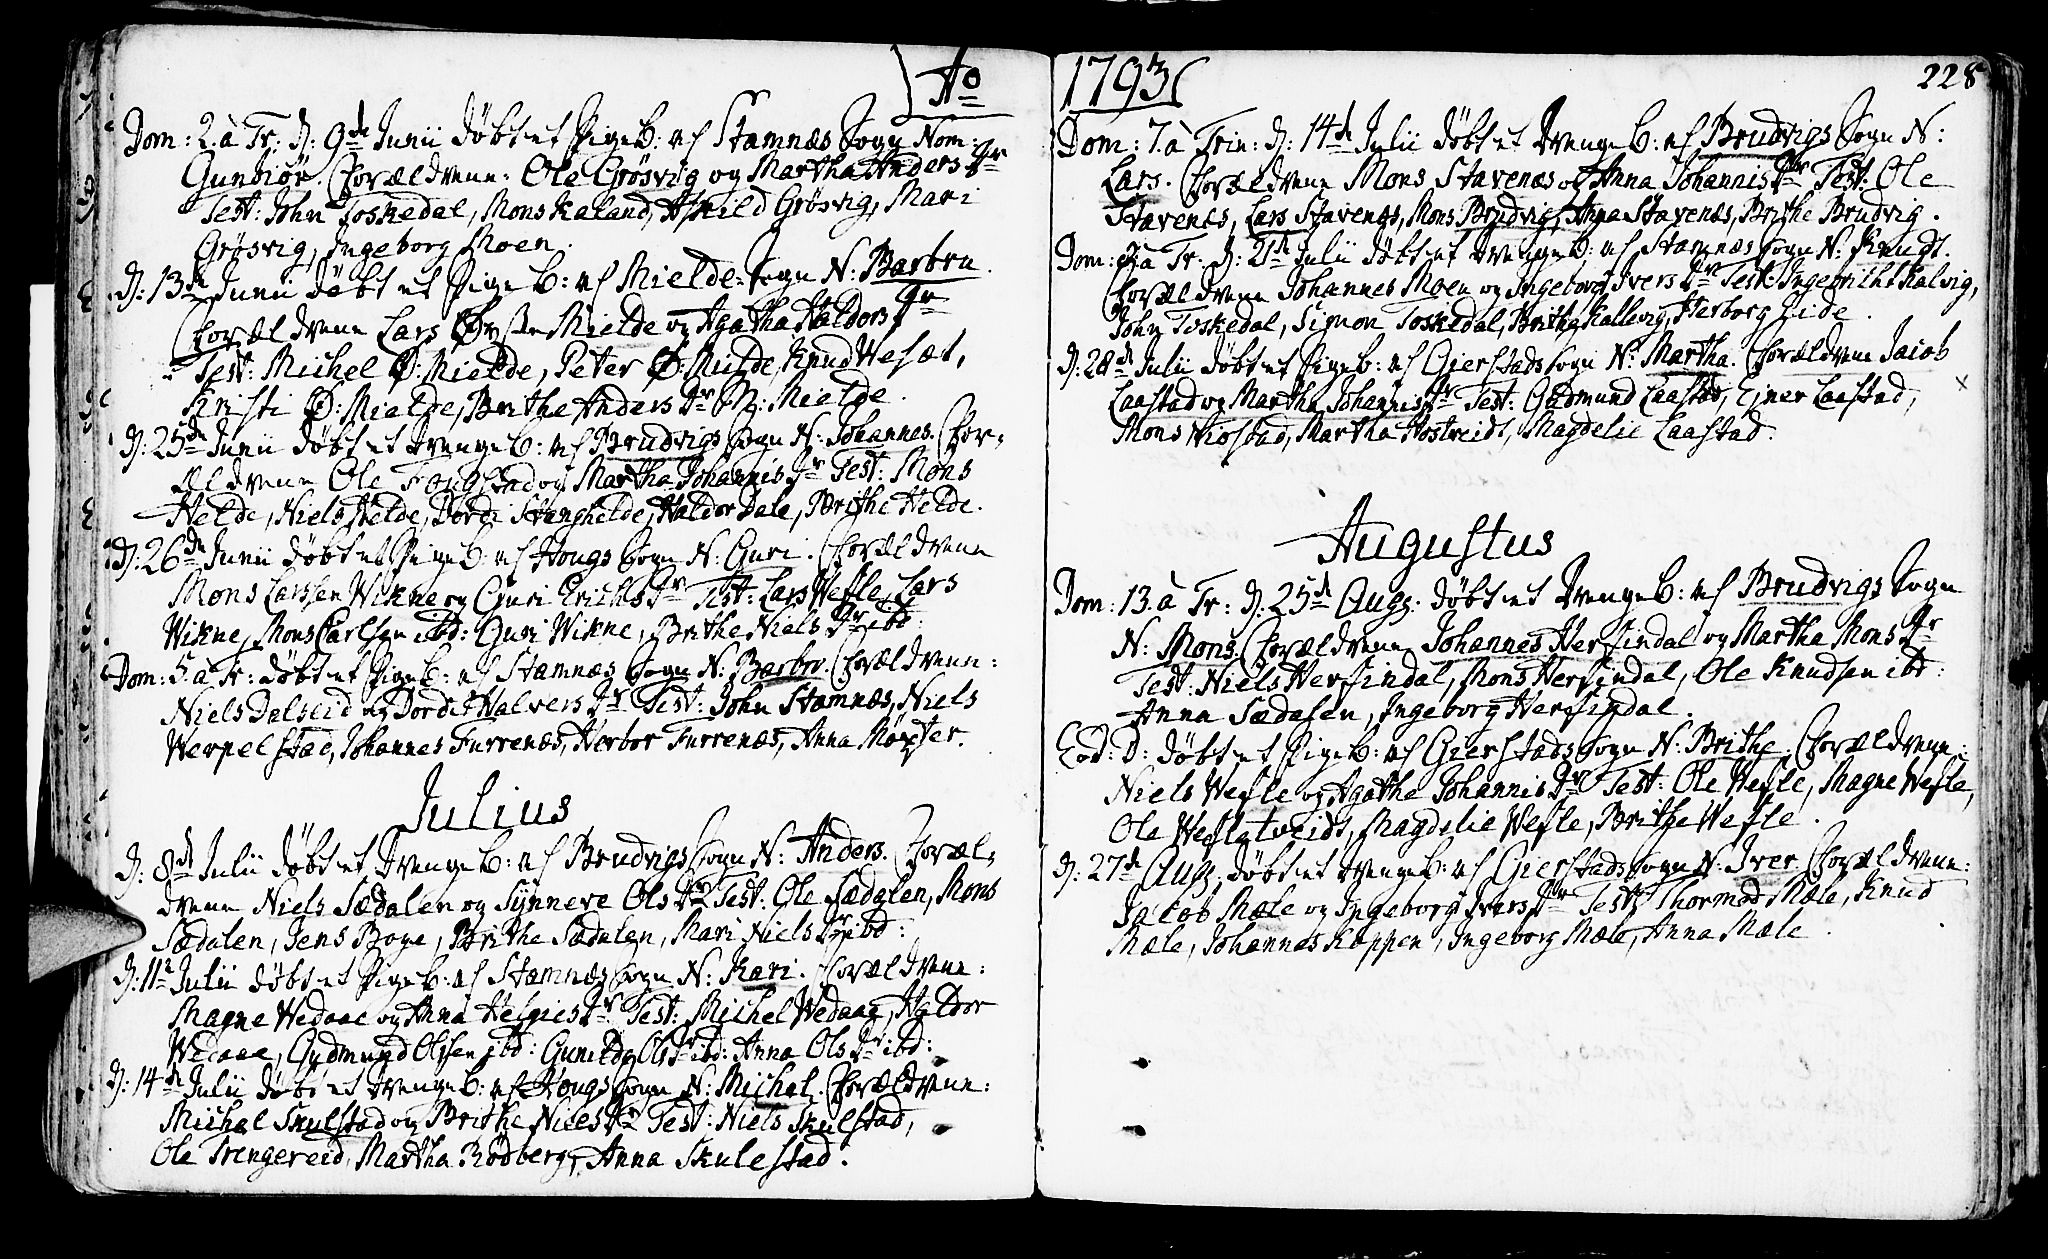 Ao
Dom: 2. à Tr: D: 9de Junii döbt et Pigeb: af Stamnæs Sogn Nom:
Gunbiör. Forældrene: Ole Grösvig og Martha Anders Dr
Test: John Toskedal, Mons Kaland, Askild Grösvig, Mari
Grösvig, Ingeborg Moen.
D: 13de Junii döbt et Pigeb: af Mielde Sogn N: Barbru.
Forældrene Lars Mielde og Agatha Haldors Dr
Test: Michel Ø: Mielde, Peter Ø: Mielde, Knud Wesæt,
Kristi Ø: Mielde, Brithe Anders Dr M: Mielde.
D: 25de Junii döbt et Drengeb: af Brudvigs Sogn N: Johannes. For-
ældrene Ole Fougstad og Martha Johannis Dr Test: Mons
Helde, Niels Helde, Dordi Stanghelde, Haldor Dale, Brithe Helde.
D: 26de Junii döbt et Pigeb: af Hougs Sogn N: Guri. Forældrene
Mons Larssen Wikne og Guri Erichs Dr Test: Lars Wefle, Lars
Wikne, Mons Carlsen ibd: Guri Wikne, Brithe Niels Dr ibd:
Dom: 5. à Tr: döbt et Pigeb: af Stamnæs Sogn N: Barbor. Forældrene:
Niels Dalseid og Dordit Halvers Dr Test: John Stamnæs, Niels
Werpelstad, Johannes Furrenæs, Herbor Furrenæs, Anna Mörster.
Julius
D: 8de Julii döbt et Drengeb: af Brudvigs Sogn N: Anders. Foræl-
drene Niels Sædalen og Synneve Ols Dr Test: Ole Sædalen, Mons
Sædalen, Jens Boge, Brithe Sædalen, Mari Niels Dr ibd:
D: 11te Julii döbt et Pigeb: af Stamnæs Sogn N: Kari. Forældrene:
Magne Wedaae og Anna Helgies Dr Test: Michel Wedaae, Haldor
Wedaae, Gudmund Olssen ibd: Gunilda Ols Dr ibd: Anna Ols Dr ibd:
D: 14de Julii döbt et Drengeb: af Hougs Sogn N: Michel. Forældrene:
Michel Skulstad og Brithe Niels Dr Test: Niels Skulstad,
Ole Trengereid, Martha Rödberg, Anna Skulestad.
1793
228
Dom: 7. à Trin: D: 14de Julii döbt et Drengeb: af Brudvigs Sogn N:
Lars. Forældrene Mons Stavenæs og Anna Johannis Dr Test: Ole
Stavenæs, Lars Stavenæs, Mons Brudvig, Anna Stavenæs, Brithe Brudvig.
Dom: 8. à Tr: D: 21de Julii döbt et Drengeb: af Stamnæs Sogn N: Knudt.
Forældrene Johannes Moen og Ingeborg Ivers Dr Test: Ingebricht Kalvig,
John Toskedal, Simon Toskedal, Britha Kallevig, Herborg Eide.
D: 28de Julii döbt et Pigeb: af Gierstads Sogn N: Martha. Forældrene Jacob
Laastad og Martha Johannis Dr Test: Gudmund Laastad, Ejner Laastad,
Mons Miöstad, Martha Hostveidt, Magdelie Laastad.
x
Augustus
Dom: 13. à Tr: D: 25de Aug: döbt et Drengeb: af Brudvigs Sogn
N: Mons. Forældrene Johannes Hersindal og Martha Mons Dr
Test: Niels Hersindal, Mons Hersindal, Ole Knudsen ibd:
Anna Sædalen, Ingeborg Hersindal.
Eod: D: döbt et Pigeb: af Gierstads Sogn N: Brithe. Forældrene:
Niels Wefle og Agathe Johannis Dr Test: Ole Wefle, Magne Wefle,
Ole Weflatveidt, Magdelie Wefle, Brithe Wefle.
D: 27de Aug: döbt et Drengeb: af Gierstads Sogn N: Iver. Forældrene:
Jacob Mæle og Ingeborg Ivers Dr Test: Thormod Mæle, Knud
Mæle, Johannes Koppen, Ingeborg Mæle, Anna Mæle.